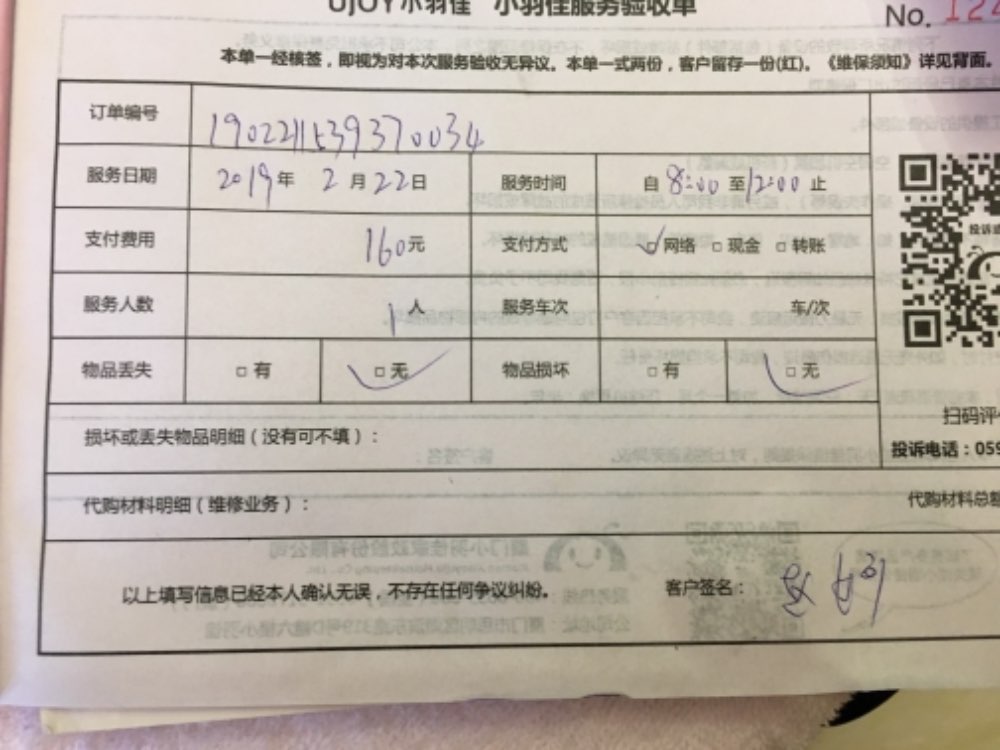 UJOY小羽佳 小羽佳服务验收单
No. 122
本单一经核签，即视为对本次服务验收无异议。本单一式两份，客户留存一份(红)。《维保须知》详见背面。
订单编号 190221539370034
服务日期 2019年 2月22日 服务时间 自 8:00 至12:00 止
支付费用 160元 支付方式 ☑网络 □现金 □转账
服务人数 1人 服务车次 车/次
物品丢失 □有 ☑无 物品损坏 □有 ☑无
损坏或丢失物品明细（没有可不填）：
扫码评
投诉电话：059
代购材料明细（维修业务）：
代购材料总额
以上填写信息已经本人确认无误，不存在任何争议纠纷。 客户签名：